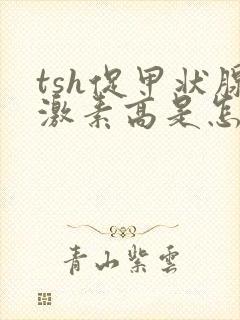 tsh促甲状腺
激素高是怎
青山紫云